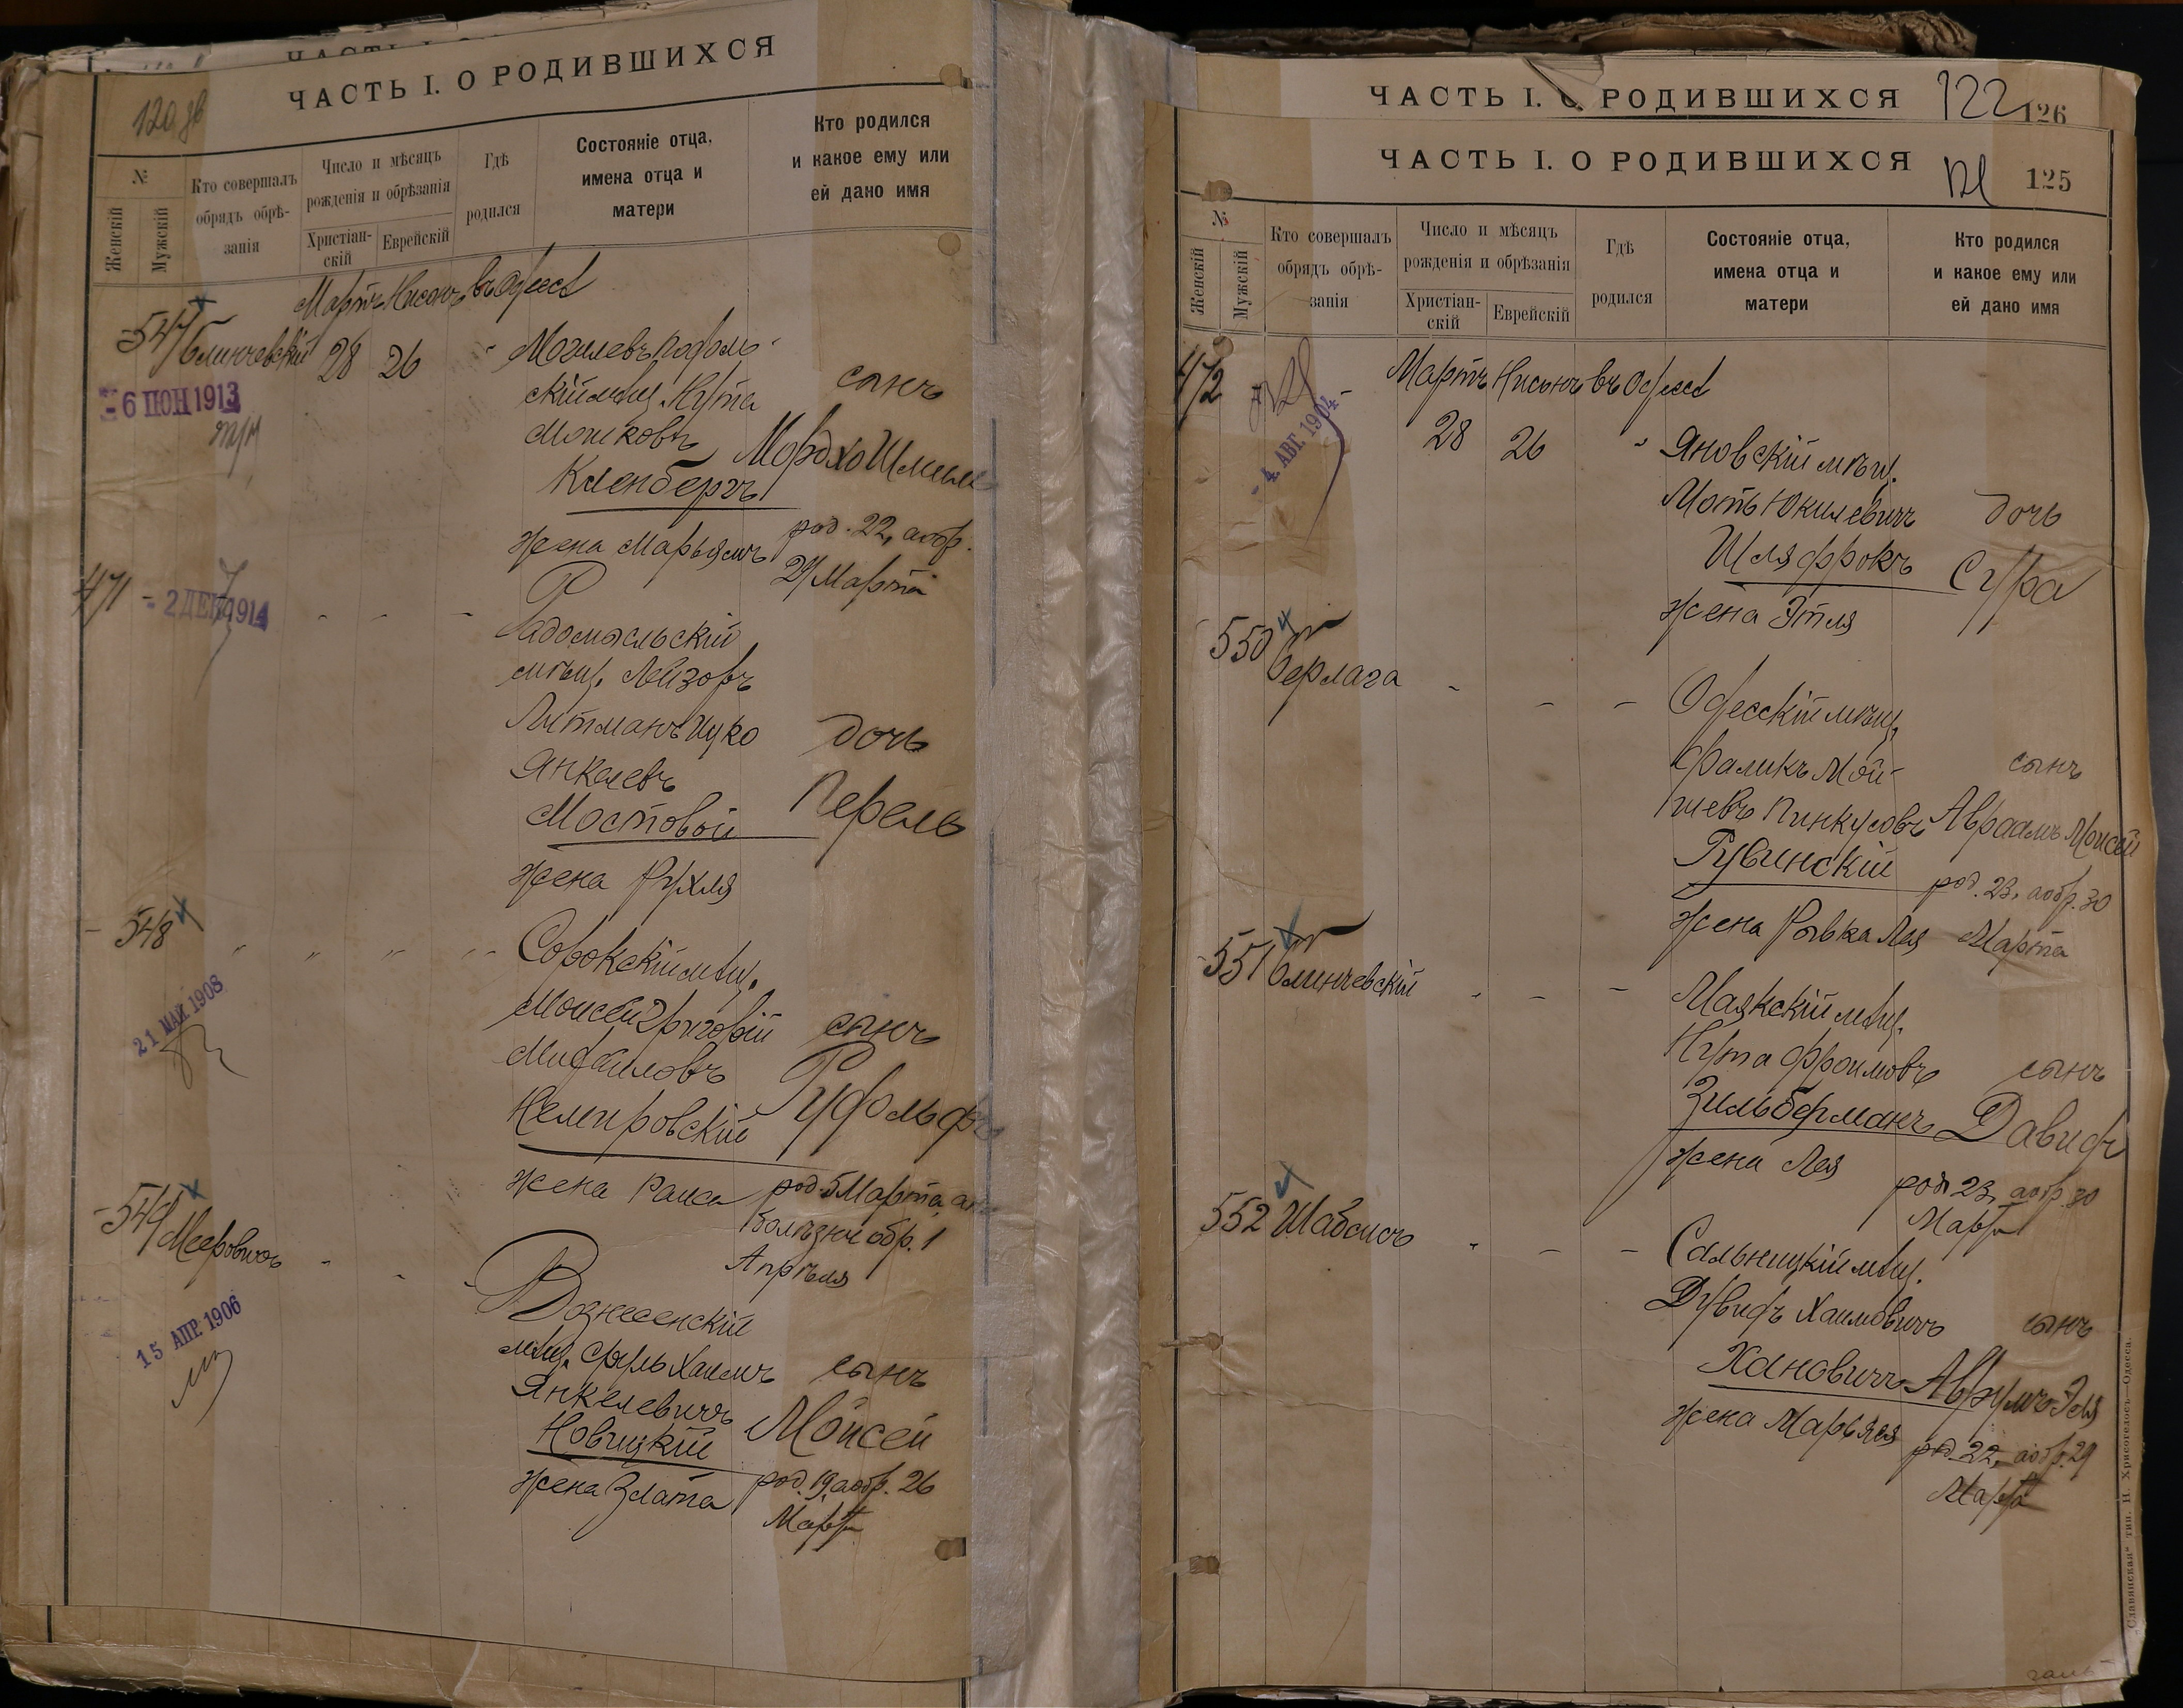 ЧАСТЬ I. О РОДИВШИХСЯ
120 зв
№
Женскій
Мужскій
Кто совершалъ обрядъ обрѣ-
занія
Число и мѣсяцъ
рожденія и обрѣзанія
Христіан-
скій
Еврейскій
Гдѣ
родился
Состояніе отца,
имена отца и
матери
Кто родился
и какое ему или
ей дано имя
Мартъ Нисонъ въ Одессѣ
547 Блинчевскій 28 26 " Могилевъ подоль-
скій мѣщ. Нута сынъ
6 ІЮН 1913
Мошковъ Мордхо Шмиль
Кленбергъ
род. 22, а обр.
жена Марьямъ
29 Марта
471 - 2 ДЕК 1914 - - -
Радомысльскій
мѣщ. Лейзоръ
Литманъ Ицко дочь
Янкелевъ
Мостовой Перель
жена Рухля
548 " " " " Сорокскій мѣщ.
21 МАЙ 1908
Моисей Григорій сынъ
Михайловъ
Немировскій Рудольфъ
жена Раиса род. 5 Марта, а по
болѣзни обр. 1
Апрѣля
549 Мееровичъ - - -
Вознесенскій
15 АПР. 1906
мѣщ. Сруль Хаимъ сынъ
Янкелевичъ
Новицкій Мойсей
жена Злата род. 19, а обр. 26
Марта
ЧАСТЬ I. О РОДИВШИХСЯ 122 126
ЧАСТЬ I. О РОДИВШИХСЯ 121 125
№
Женскій
Мужскій
Кто совершалъ
обрядъ обрѣ-
занія
Число и мѣсяцъ
рожденія и обрѣзанія
Христіан-
скій
Еврейскій
Гдѣ
родился
Состояніе отца,
имена отца и
матери
Кто родился
и какое ему или
ей дано имя
472 - Мартъ Нисонъ въ Одессѣ
- 4. АВГ. 1904
28 26 " Яновскій мѣщ.
Моть Юкилевичъ дочь
Шляффрокъ Сура
жена Этля
550 Берлага - - - Одесскій мѣщ.
Фаликъ Мой- сынъ
шевъ Пинкусовъ Авраамъ Моисей
Рувинскій род. 23, а обр. 30
жена Рывка Лея Марта
551 Блинчевскій " - - Маякскій мѣщ.
Нута Фроимовъ сынъ
Зильберманъ Давидъ
жена Лея род. 23, а обр. 30
Марта
552 Шабсисъ " - - Сальницкій мѣщ.
Дувидъ Хаимовичъ сынъ
Хановичъ Аврумъ Эля
жена Марьяся род. 22, а обр. 29
Марта
„Славянская“ тип. Н. Хрисогелосъ—Одесса.